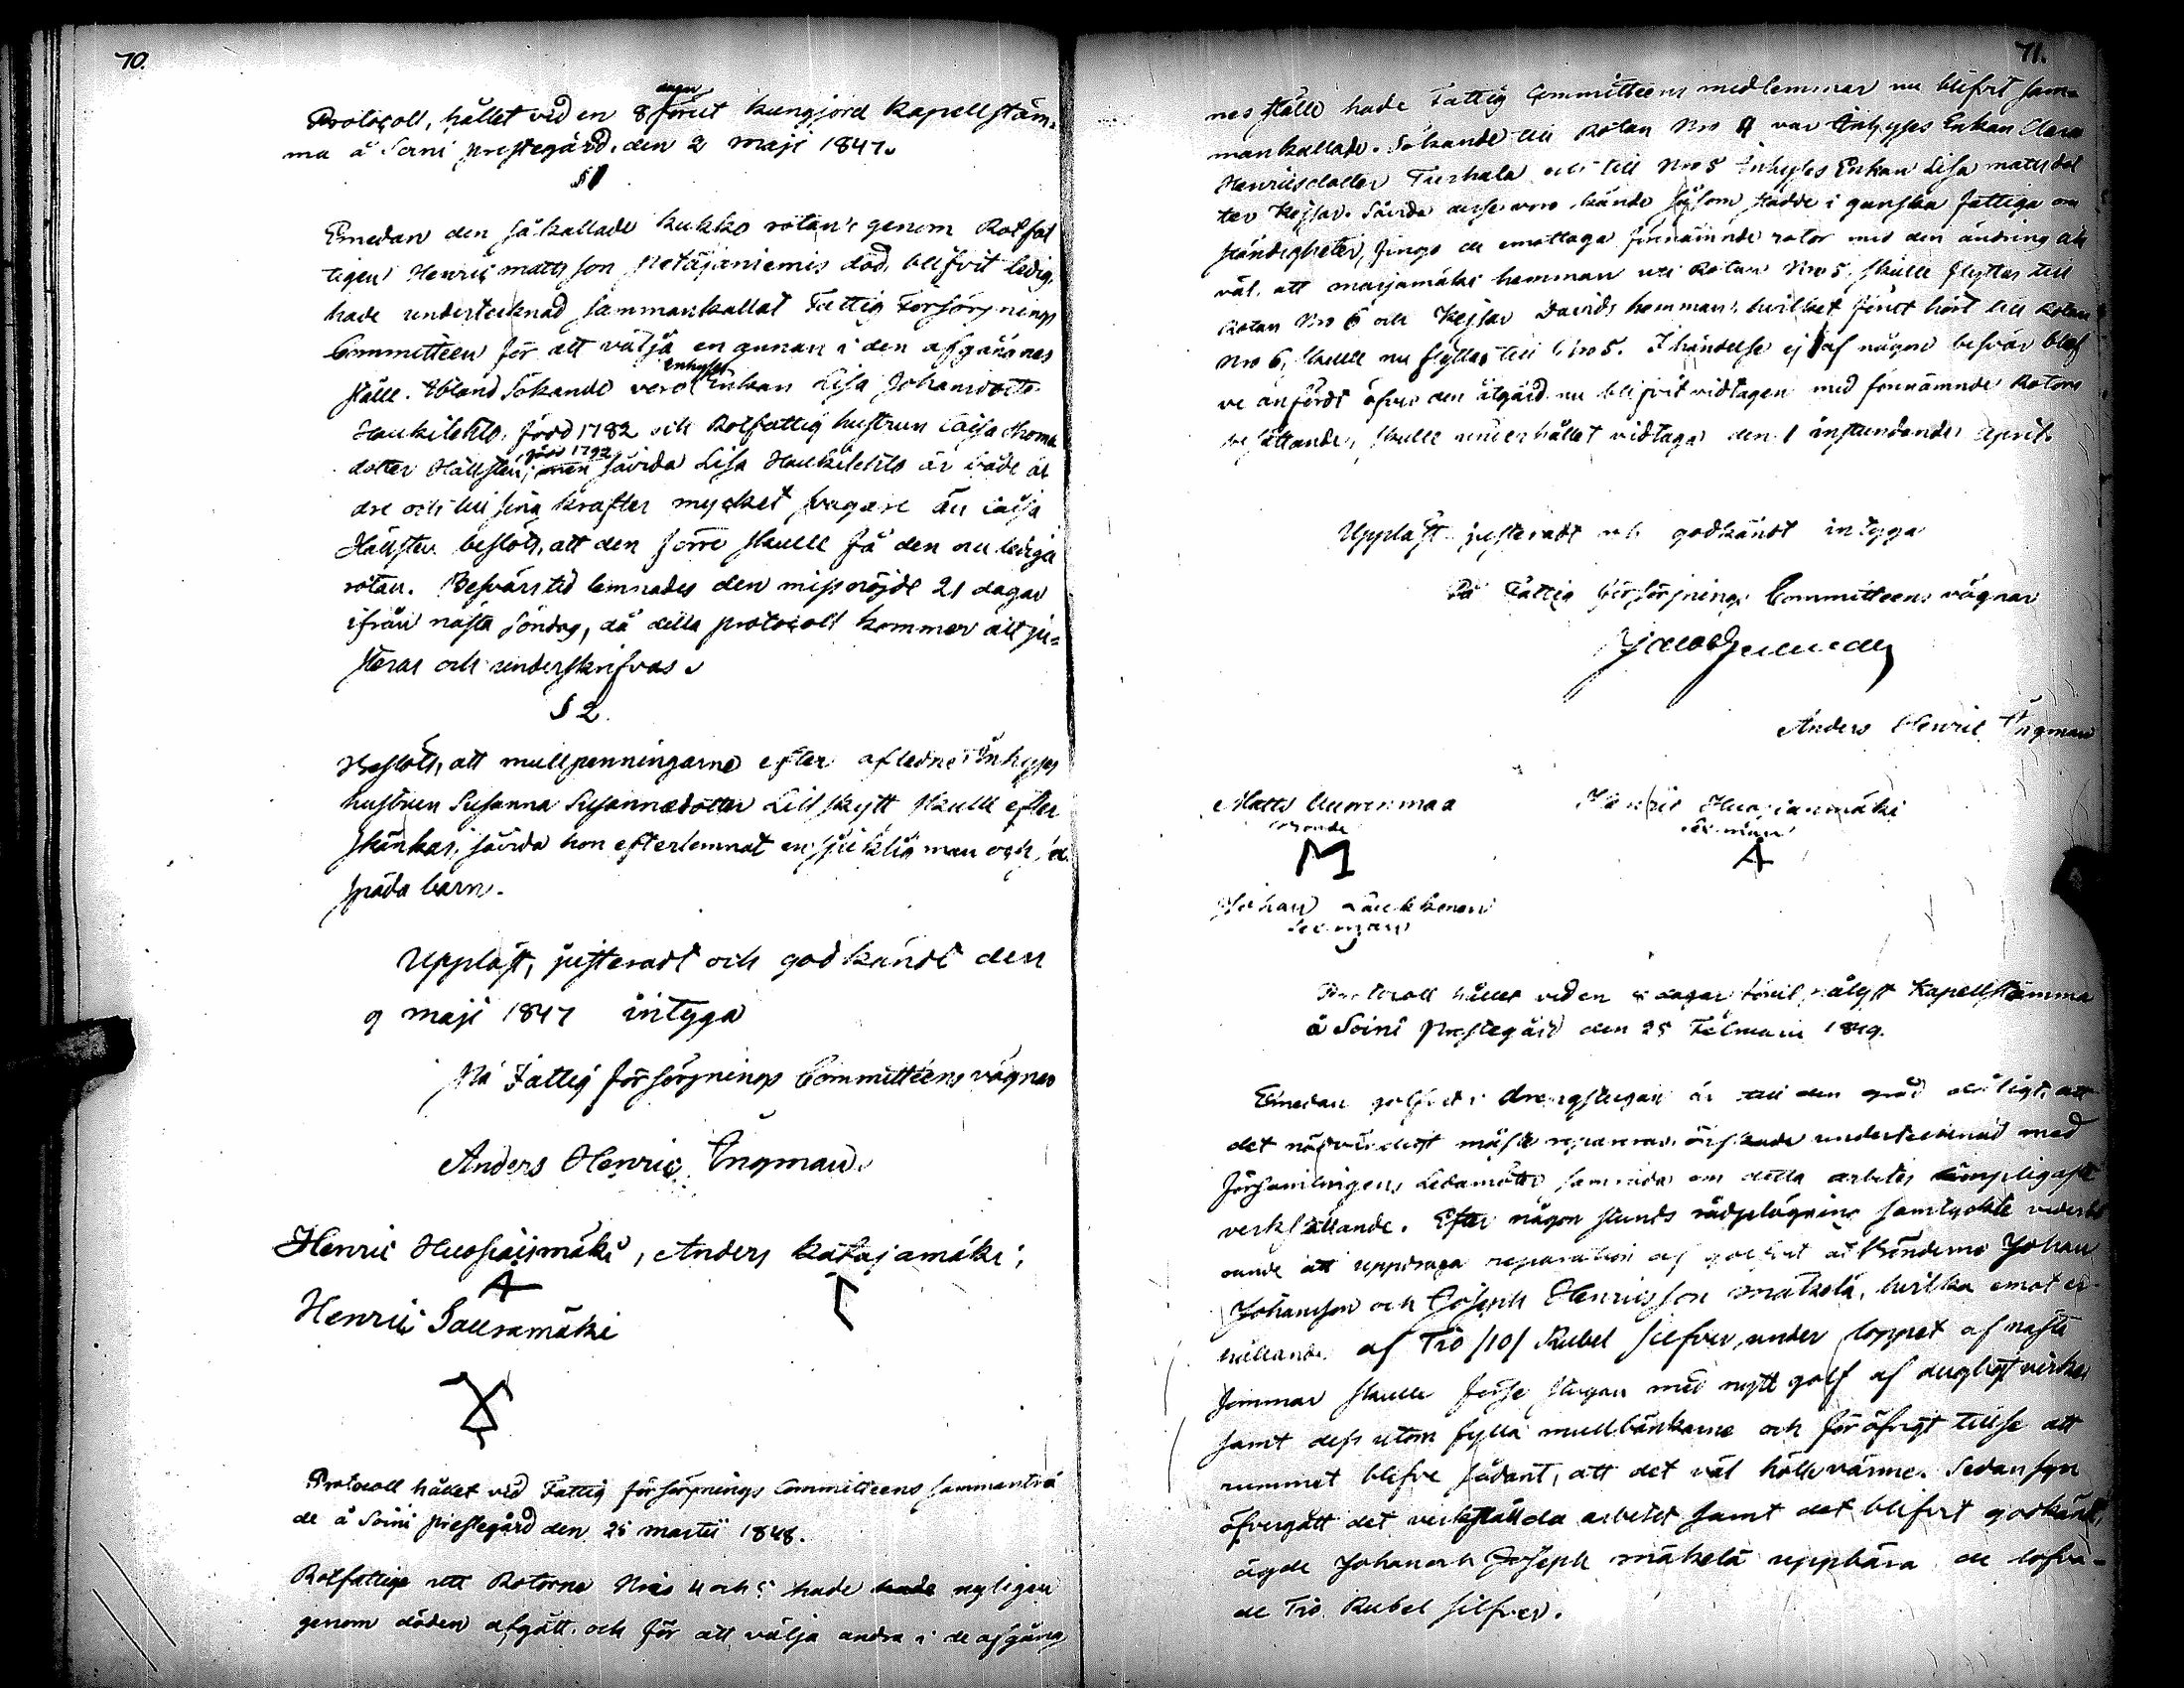 70.
Protocoll, hållet vid en 8 dagar förut kungjord Kapellstäm-
ma å Soini prestegård, den 2 maji 1847.
§ 1
Emedan den så kallade Kukko rotan, genom Rotfat
tigen Henric Mattsson Petäjäniemis död, blifvit ledig,
hade undertecknad sammankallat Fattig Försörjnings
Committeen för att välja en annan i den afgångnes
ställe. Ibland sökande voro Inhyses Enkan Lisa Johansdotter
Haukilehto, född 1782 och Rotfattig hustrun Caisa Thomæ
dotter Hällsten, född 1792, men såvida Lisa Haukilehto är både äl
dre och till sina krafter mycket svagare än Caisa
Hällsten beslöts, att den förre skulle få den nu lediga
rotan. Besvärstid lemnades den missnöjde 21 dagar
ifrån nästa söndag, då detta protocoll kommer att ju-
steras och underskrifvas.
§ 2.
Beslöts, att mullpenningarne efter afledne Inhyses
hustrun Susanna Susannædotter Lillskytt skulle efter
skänkas, såvida hon efterlemnat en sjuklig man och
späda barn.
Uppläst, justeradt och godkändt den
9 maji 1847 intyga
På Fattig försörjnings Committéens vägnar
Anders Henric Ingman.
Henric Huosianmäki, Anders Katajamäki,
Henric Sauramäki
Protocoll hållet vid Fattig försörjnings Committeens sammanträ
de å Soini prestegård den 25 martii 1848.
Rotfattige uti Rotorne Nris 4 och 5 hade hade nyligen
genom döden afgått, och för att välja andra i de afgång
71.
nes ställe hade Fattig Committeens medlemmar nu blifvit sam-
mankallade. Sökande till Rotan Nro 4 var Inhyses Enkan Clara
Henricsdotter Turhala och till Nro 5 Inhyses Enkan Lisa Mattsdot
ter Kejsar. Såvida desse voro kände såsom stadde i ganska fattiga om
ständigheter, fingo de emottaga förnämnde rotor med den ändring
väl, att Marjamäki hemman uti Rotan Nro 5, skulle flyttas till
Rotan Nro 6 och Kejsar Davids hemman, hvilket förut hört till Rotan
Nro 6, skulle nu flyttas till Nro 5. I händelse ej af någon besvär blef
ve anfördt öfver den åtgärd nu blifvit vidtagen med förnämnde Rotors
besättande, skulle underhållet vidtaga den 1 instundande April.
Uppläst justeradt och godkändt intyga
På Fattig försörjnings Committeens vägnar
Anders Henric Ingman
Matts Uurenmaa
Henric Huosianmäki
sexman
Johan Laukkonen
sexman
Protocoll hållet vid en 8 dagar förut pålyst Kapellstämma
å Soini Prestegård den 25 Februarii 1849.
Emedan golfvet i drengstugan är till den grad dåligt, att
det nödvändigt måste repareras, önskade undertecknad med
församlingens Ledamöter samråda om detta arbetes lämpligaste
verkställande. Efter någon stunds rådplägning samtyckte
att uppdraga reparation af golfvet åt Bönderne Johan
Johansson och Joseph Henricsson Mäkelä, hvilka emot er-
hållande af Tio /10/ Rubel silfver, under loppet af nästa
sommar skulle förse stugan med nytt golf af dugligt virke,
samt dess utom fylla mullbänkarne och för öfrigt tillse att
rummet blifve sådant, att det väl hölle värme. Sedan syn
öfvergått det verkställda arbetet samt det blifvit godkändt,
ägde Johan och Joseph Mäkelä uppbära de lofva-
de Tio Rubel silfver.